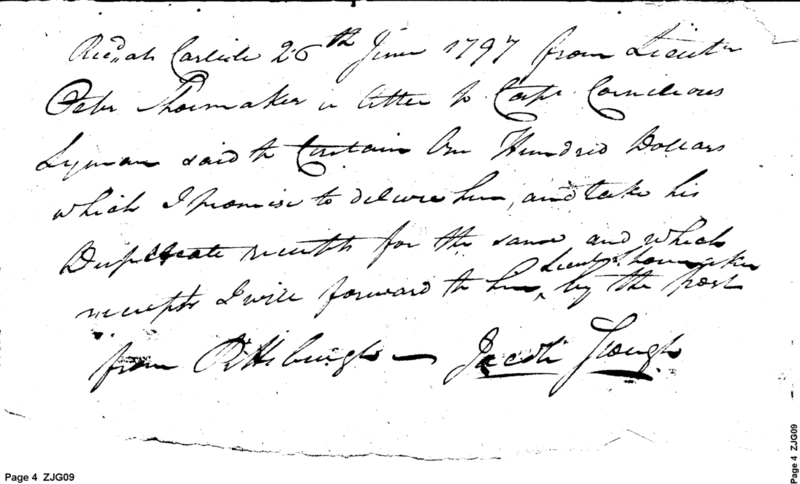 Recd. at Carlisle 26th June 1797 from Lieutn
Peter Shoemaker a letter to Capt Cornelious
Lyman said to Contain One Hundred Dollars
which I promise to deliver him, and take his
Duplicate receipts for the same and which
Lieut Shoemaker
receipts I will forward to him by the post
from Pittsburgh — Jacob
Page 4 ZJG09
Page 4 ZJG09